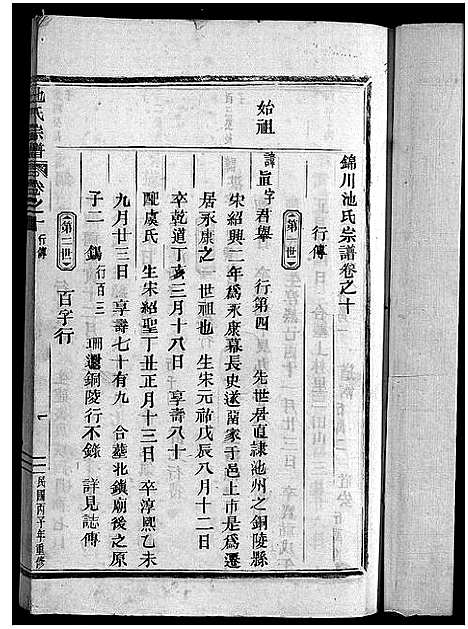 錦川池氏宗譜卷之十
行傳
第一世
始祖
諱眞字君舉 行第四 先世居直隸池州之銅陵縣
宋紹興二年爲永康幕長史遂留家于邑上市是爲遷
居永康之一世祖也 生宋元祐戊辰八月十二日
卒乾道丁亥三月十八日 享壽八十
配虞氏 生宋紹聖丁丑正月十三日 卒淳熙乙未
九月廿三日 享壽七十有九 合墓北鎮廟後之原
子二 錫行百三 珊還銅陵行不錄 詳見誌傳
百字行
第二世
池氏宗譜 卷之十 行傳
一
民國丙午年重修